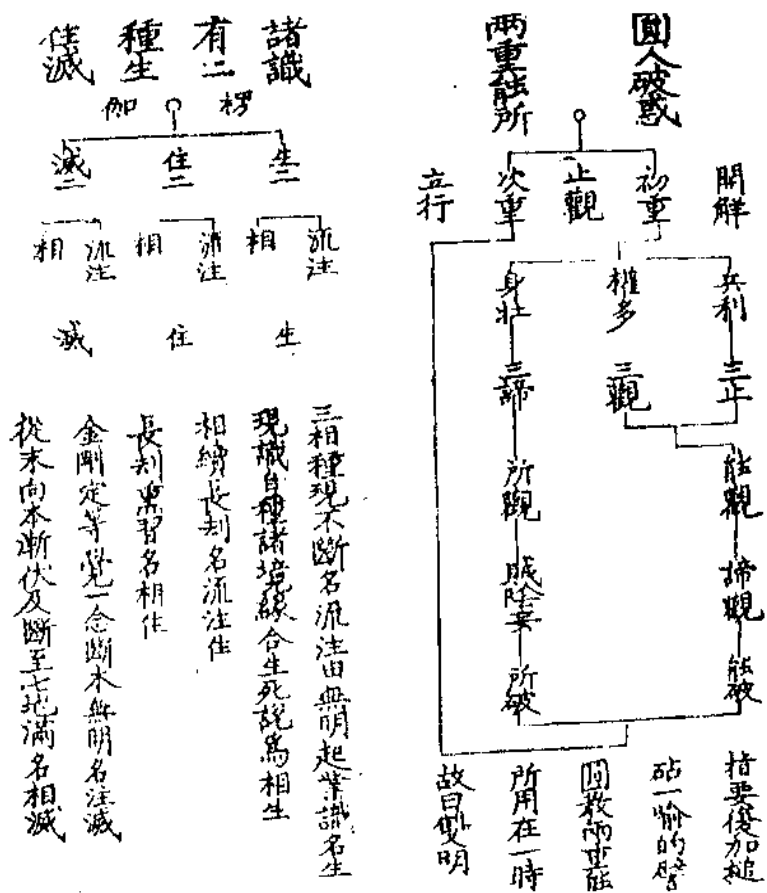 圓人破惑
兩重能所
開解
初重
止觀
次重
立行
兵利
權多
身壯
三止
三觀
三諦
能觀
所觀
諦觀
賊除妄
能破
所破
指要復加槌
砧一喻的譬
圓教兩重能
所用在一時
故曰雙明
諸識
有二
種生
住滅
楞
伽
生二
住二
滅二
流注
相
流注
相
流注
相
生
住
滅
三相種現不斷名流注由無明起業識名生
現識自種諸境緣合生死說為相生
相續長刼名流注住
長刼熏習名相住
金剛定等覺一念斷本無明名注滅
從末向本漸伏及斷至七地滿名相滅